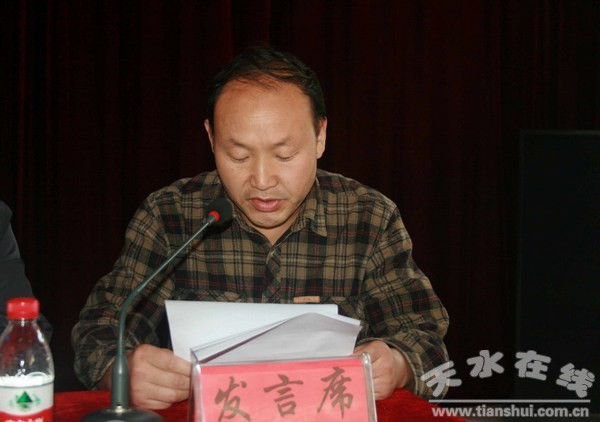 发言席
天水在线
www.tianshui.com.cn